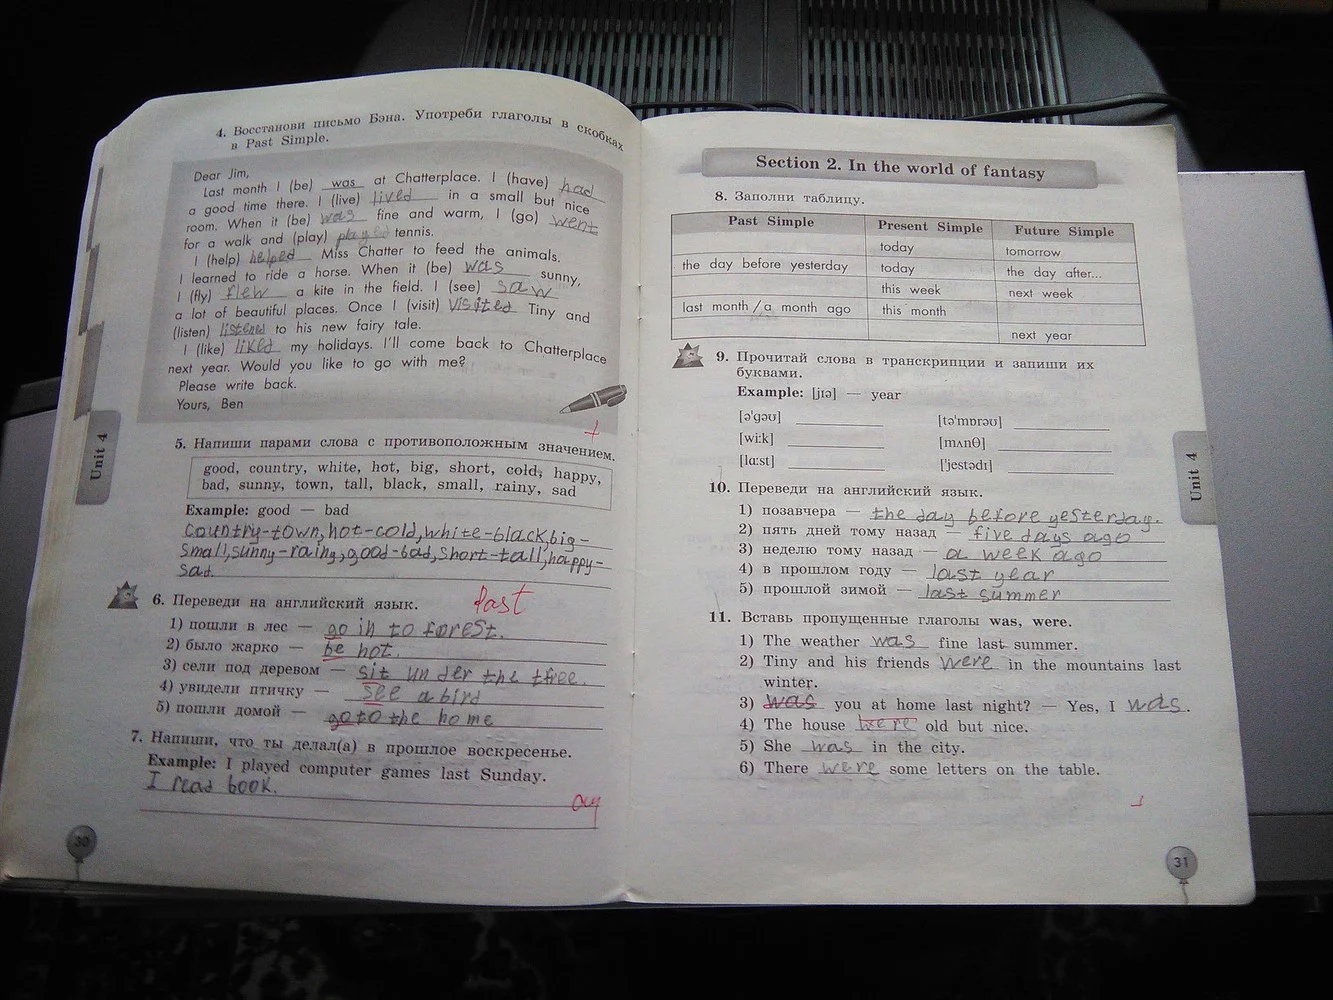 4. Восстанови письмо Бэна. Употреби глаголы в скобках
в Past Simple.
Dear Jim,
Last month I (be) was at Chatterplace. I (have) had
a good time there. I (live) lived in a small but nice
room. When it (be) was fine and warm, I (go) went
for a walk and (play) played tennis.
I (help) helped Miss Chatter to feed the animals.
I learned to ride a horse. When it (be) was sunny,
I (fly) flew a kite in the field. I (see) saw
a lot of beautiful places. Once I (visit) visited Tiny and
(listen) listened to his new fairy tale.
I (like) liked my holidays. I'll come back to Chatterplace
next year. Would you like to go with me?
Please write back.
Yours, Ben
+
5. Напиши парами слова с противоположным значением.
good, country, white, hot, big, short, cold, happy,
bad, sunny, town, tall, black, small, rainy, sad
Example: good — bad
country-town, hot-cold, white-black, big-
small, sunny-rainy, good-bad, short-tall, happy-
sad.
Past
6. Переведи на английский язык.
1) пошли в лес — go in to forest.
2) было жарко — be hot.
3) сели под деревом — sit under the tfree.
4) увидели птичку — see a bird
5) пошли домой — go to the home
7. Напиши, что ты делал(а) в прошлое воскресенье.
Example: I played computer games last Sunday.
I read book.
Unit 4
30
Section 2. In the world of fantasy
8. Заполни таблицу.
Past Simple Present Simple Future Simple
today tomorrow
the day before yesterday today the day after...
this week next week
last month / a month ago this month
next year
9. Прочитай слова в транскрипции и запиши их
буквами.
Example: [jɪə] — year
[ə'gəʊ] [tə'mɒrəʊ]
[wi:k] [mʌnθ]
[lɑ:st] ['jestədɪ]
10. Переведи на английский язык.
1) позавчера — the day before yesterday.
2) пять дней тому назад — five days ago
3) неделю тому назад — a week ago
4) в прошлом году — last year
5) прошлой зимой — last summer
11. Вставь пропущенные глаголы was, were.
1) The weather was fine last summer.
2) Tiny and his friends were in the mountains last
winter.
3) was you at home last night? — Yes, I was.
4) The house were old but nice.
5) She was in the city.
6) There were some letters on the table.
Unit 4
31